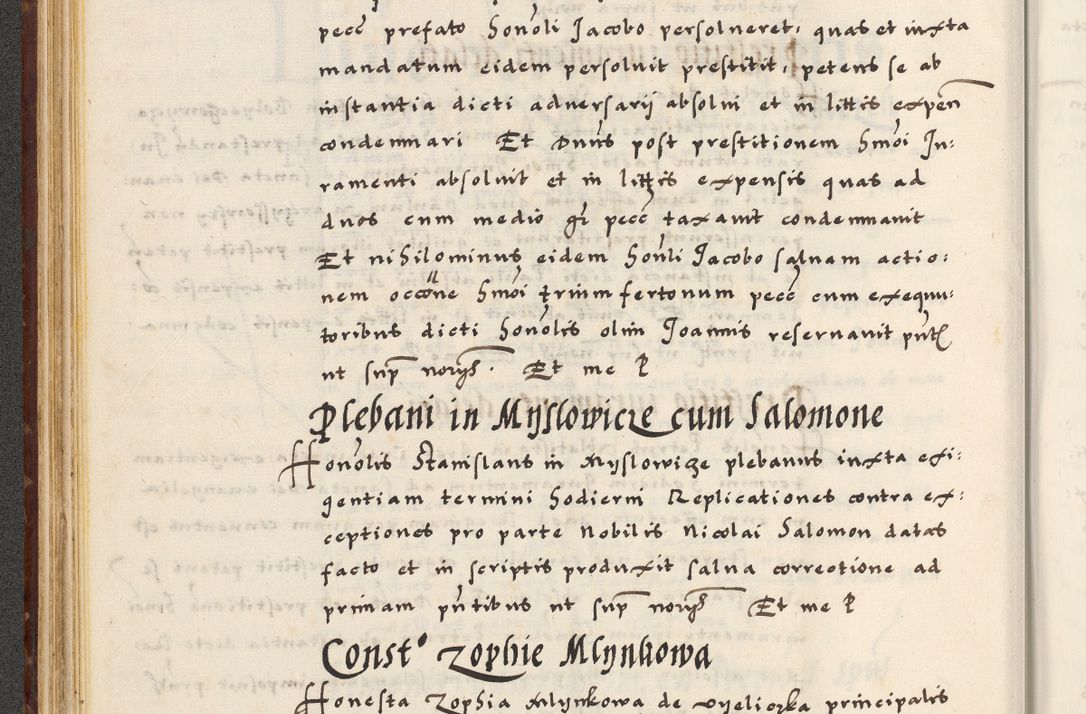 pecc prefato honoli Jacobo persolveret, quas et iuxta
mandatum eidem persoluit prestitit, petens se ab
instantia dicti adversarij absolui et in littis expen
condemnari Et Dnus post prestitionem hmoi Ju:
ramenti absoluit et in littis expensis quas ad
duos cum medio gr pecc taxauit condemnauit
Et nihilominus eidem honli Jacobo saluam actio:
nem occone hmoi trium fertonum pecc cum exequu:
toribus dicti honolis olim Joannis reseruauit pntt
ut sup norijs. Et me P
Plebani in Myslowicze cum Salomone
Honolis Stanislaus in Myslowicze plebanus iuxta exi:
gentiam termini hodierni Replicationes contra ex:
ceptiones pro parte Nobilis Nicolai Salomon datas
facto et in scriptis produxit salua correctione ad
primam pntibus ut sup norijs Et me P
Const° Zophie Mlynkowa
Honesta Zophia Mlynkowa de Vyeliczka principalis